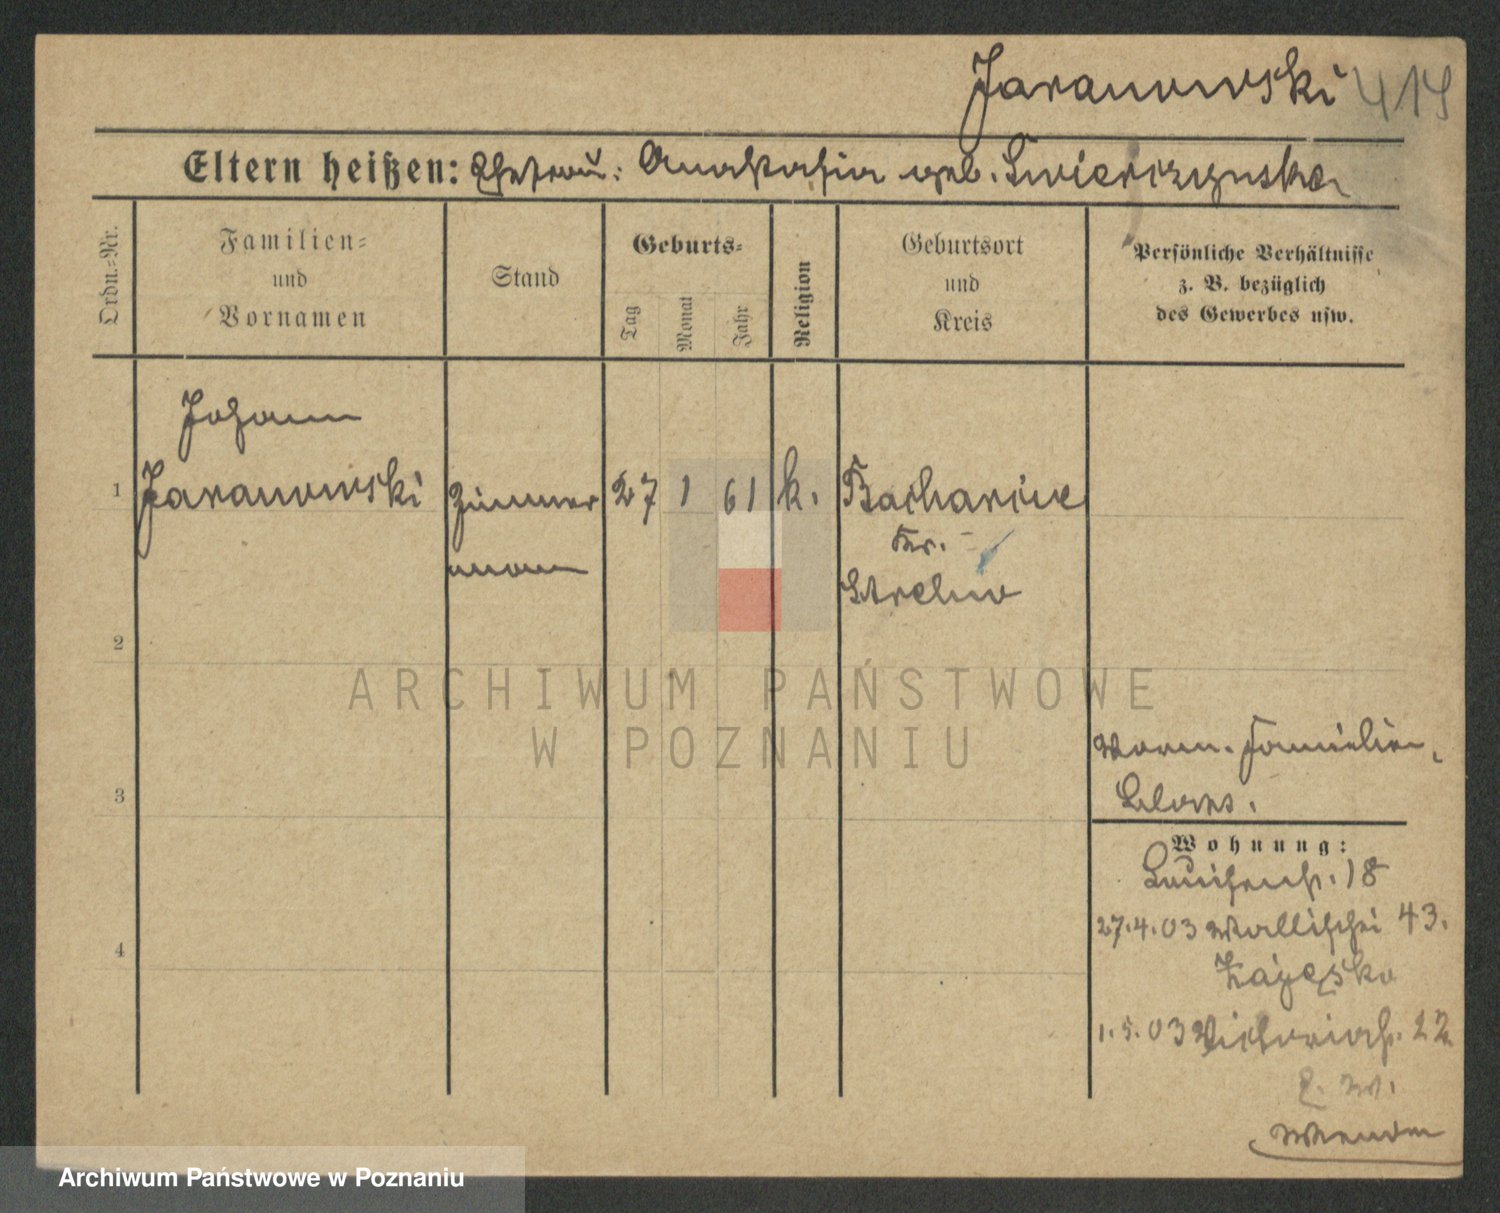 Jaranowski 414
Eltern heißen: Ehefrau: Anastasia geb. Swierczynska
Ordn.-Nr.
Familien-
und
Vornamen
Stand
Geburts-
Tag
Monat
Jahr
Religion
Geburtsort
und
Kreis
Persönliche Verhältnisse
z. B. bezüglich
des Gewerbes usw.
Johann
1 Jaranowski Zimmer 27 1 61 k. Bacharcie
mann Kr.
Strelno
2
ARCHIWUM PAŃSTWOWE
W POZNANIU
Familien
3
Wohnung:
Louisenstr. 18
27.4.03 Wallischei 43.
4
1.5.03 Victoriastr. 22
Archiwum Państwowe w Poznaniu